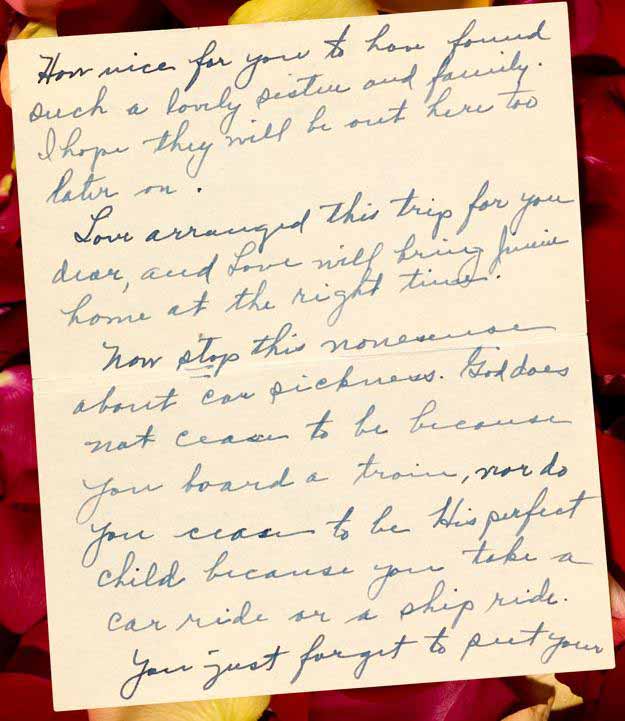 How nice for you to have found
such a lovely sister and family.
I hope they will be out here too
later on.
Love arranged this trip for you
dear, and Love will bring
home at the right time.
Now stop this nonesense
about car sickness. God does
not cease to be because
you board a train, nor do
you cease to be His perfect
child because you take a
car ride or a ship ride.
You just forget to put your